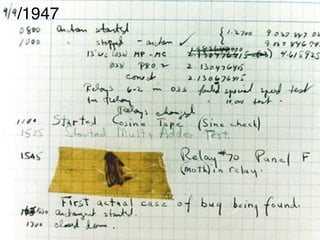 9/9/1947
0800 antan started
1000 " stopped - antan ✓ { 1.2700 9.037 847 025
13" UC (032) MP-MC 2.130476415 4.615925
033 PRO 2 2.130476415
conect 2.130676415
Relays 6-2 in 033 failed special speed test
in relay " 10.000 test.
Relays changed
1100 Started Cosine Tape (Sine check)
1525 Started Mult+Adder Test.
1545 Relay #70 Panel F
(moth) in relay.
First actual case of bug being found.
antangent started.
1700 closed down.